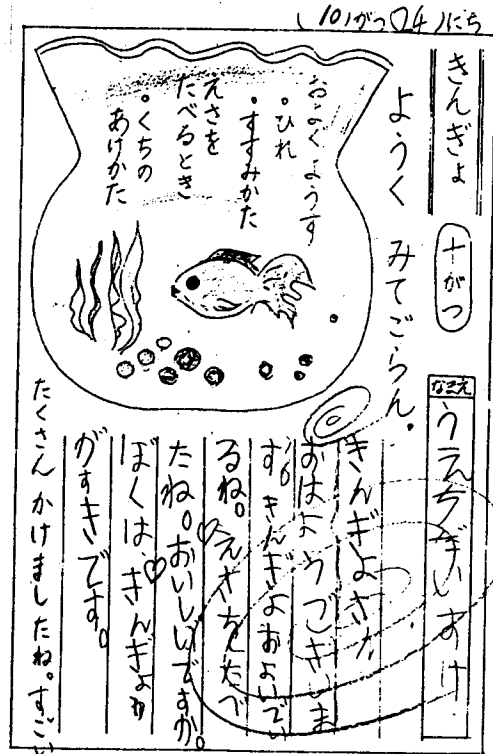 (10)がつ(24)にち
きんぎょ
十がつ
なまえ
うえちだいすけ
ようく みてごらん。
およぐようす
•ひれ
•すすみかた
えさを
たべるとき
•くちの
あけかた
きんぎょさん
おはようございま
す。きんぎょおよいでい
るね。えさをたべ
たね。おいしいですか。
ぼくは、きんぎょ
がすきです。
たくさんかけましたね。すごい